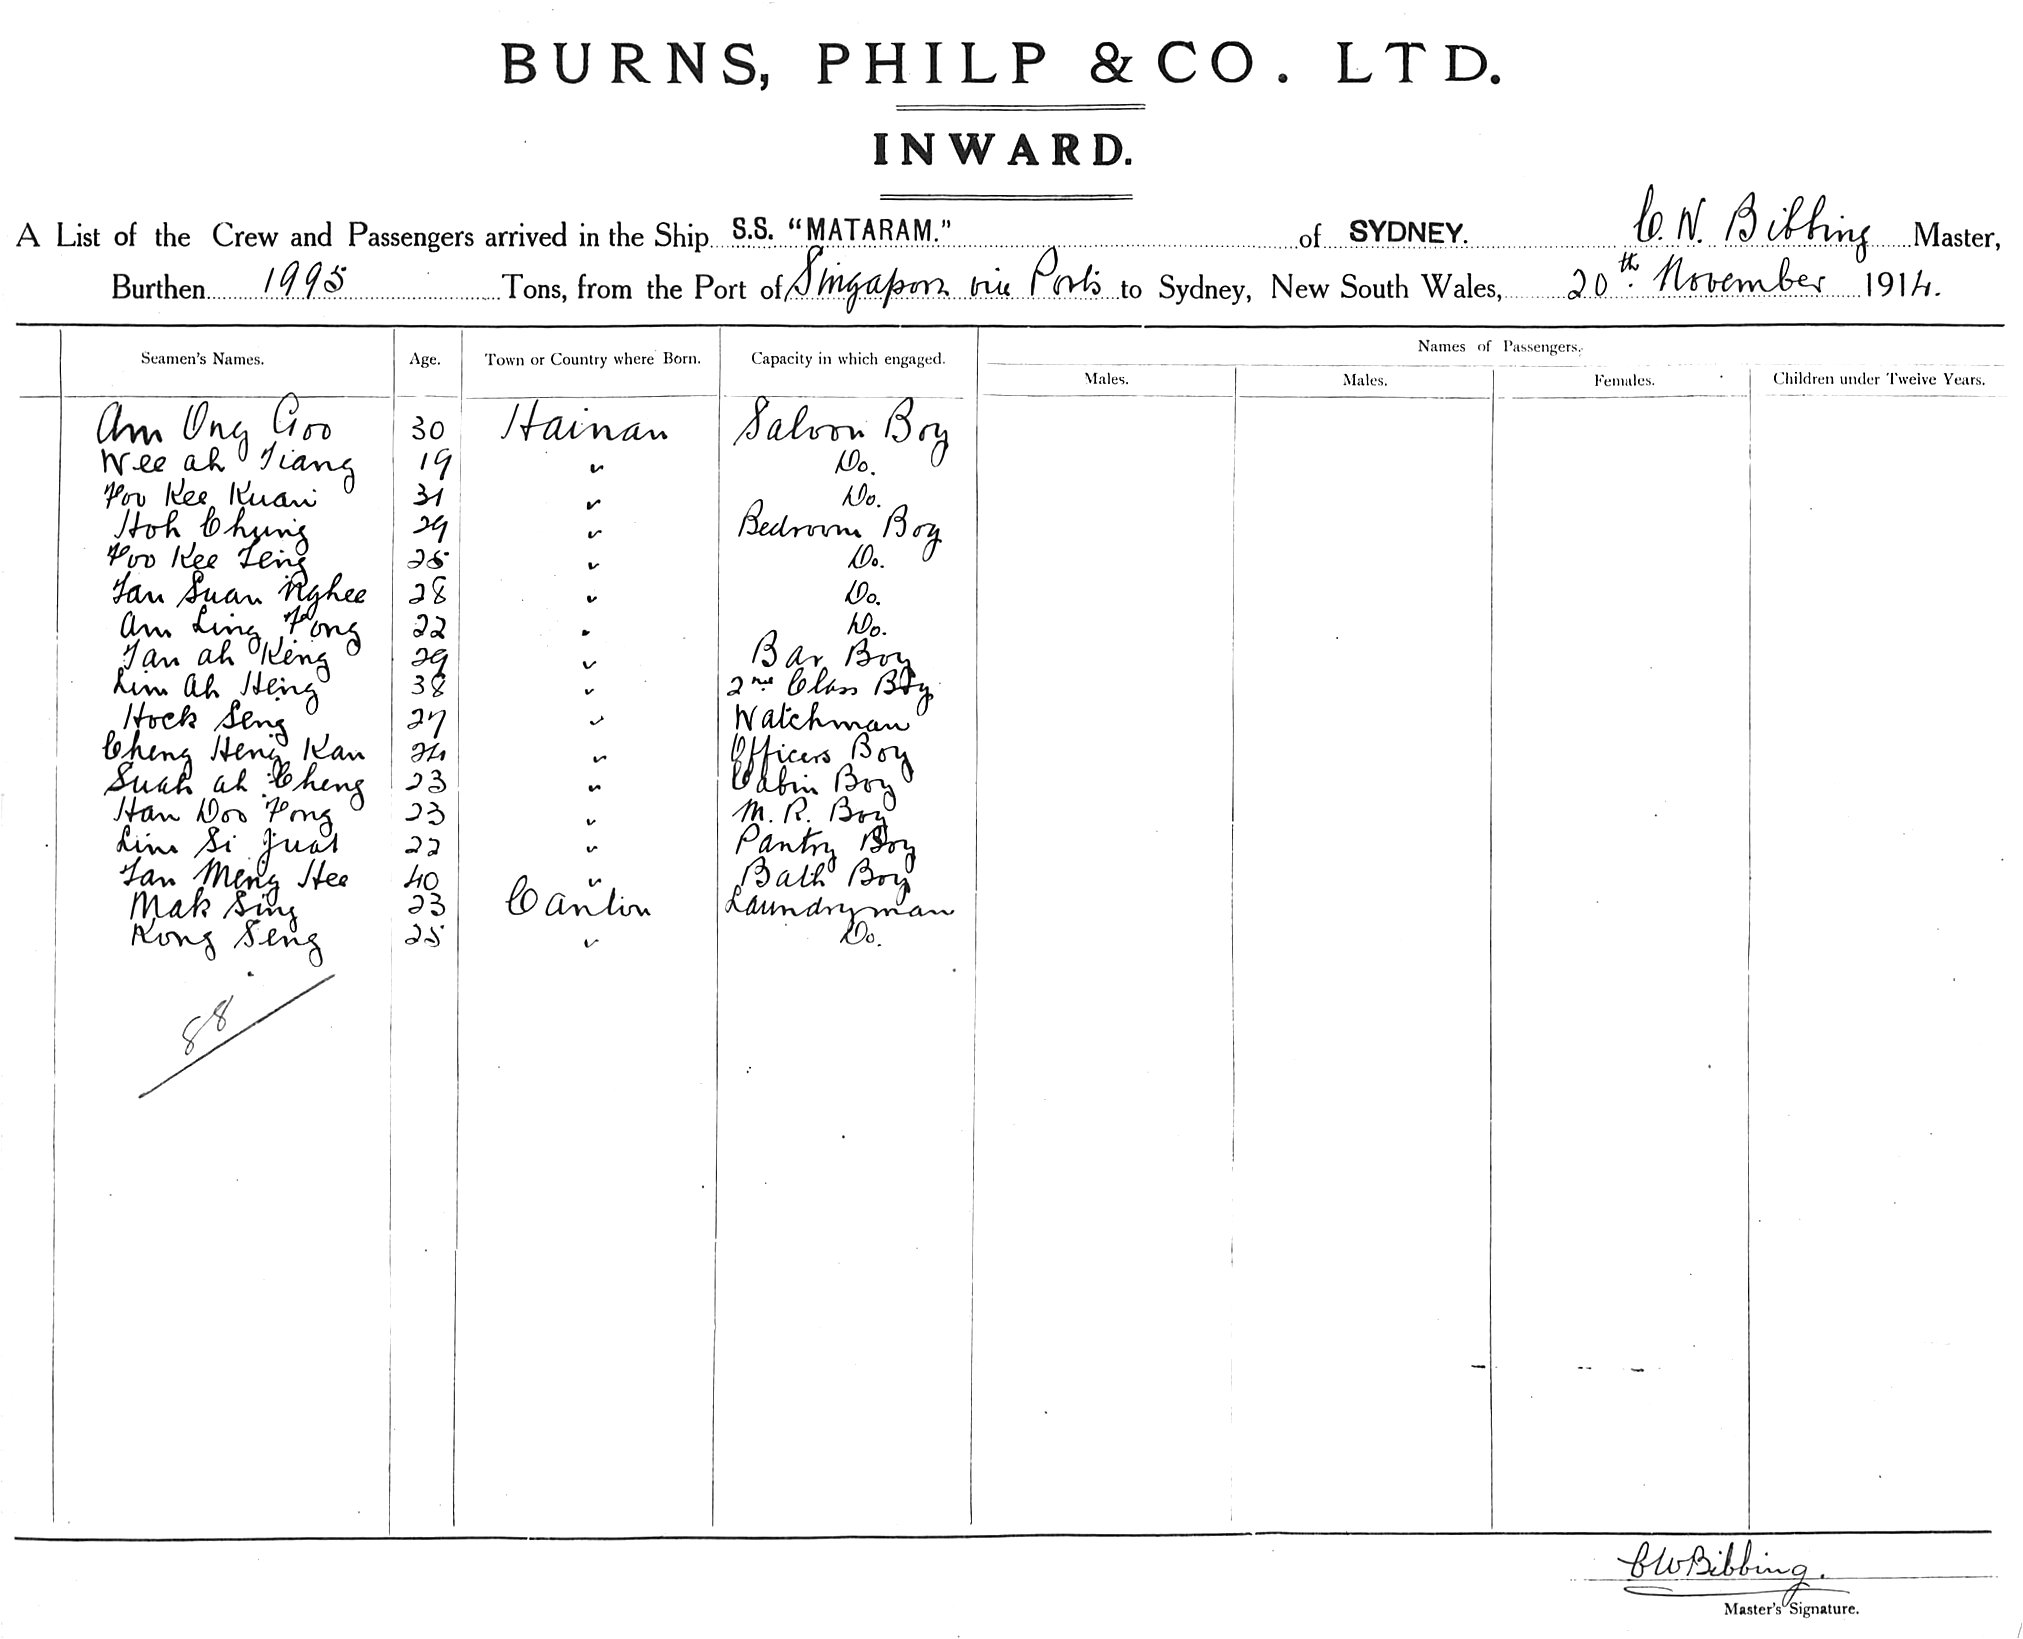 BURNS, PHILP & CO. LTD.
INWARD.
A List of the Crew and Passengers arrived in the Ship S.S. "MATARAM." of SYDNEY. C. W. Bibbing Master,
Burthen 1995 Tons, from the Port of Singapore via Ports to Sydney, New South Wales, 20th November 1914.
Names of Passengers.
Seamen's Names. Age. Town or Country where Born. Capacity in which engaged. Males. Males. Females. Children under Twelve Years.
Am Ong Goo 30 Hainan Saloon Boy
Wee ah Tiang 19 " Do.
Foo Kee Kuan 31 " Do.
Hoh Chung 29 " Bedroom Boy
Foo Kee Teng 25 " Do.
Tan Suan Nghee 28 " Do.
Am Ling Fong 22 " Do.
Tan ah Keng 29 " Bar Boy
Lim Ah Heng 38 " 2nd Class Boy
Hock Seng 27 " Watchman
Cheng Heng Kan 24 " Officers Boy
Suah ah Cheng 23 " Cabin Boy
Han Doo Fong 23 " M. R. Boy
Lim Si Juat 22 " Pantry Boy
Tan Meng Hee 40 " Bath Boy
Mak Sing 23 Canton Laundryman
Kong Seng 25 " Do.
88
CWBibbing.
Master's Signature.